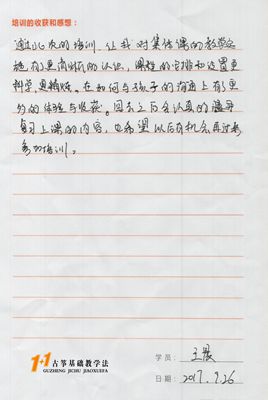 培训的收获和感想:
通过此次的培训,让我对集体课的教学实
施有了更清晰的认识,课程的安排和设置更
科学,更精炼。在如何与孩子的沟通上有了更
多的体验与收获。回去之后会认真的
复习上课的内容,也希望以后有机会再过来
参加培训。
1+1古筝基础教学法
GUZHENG JICHU JIAOXUEFA
学员:王晨
日期:2017.9.26